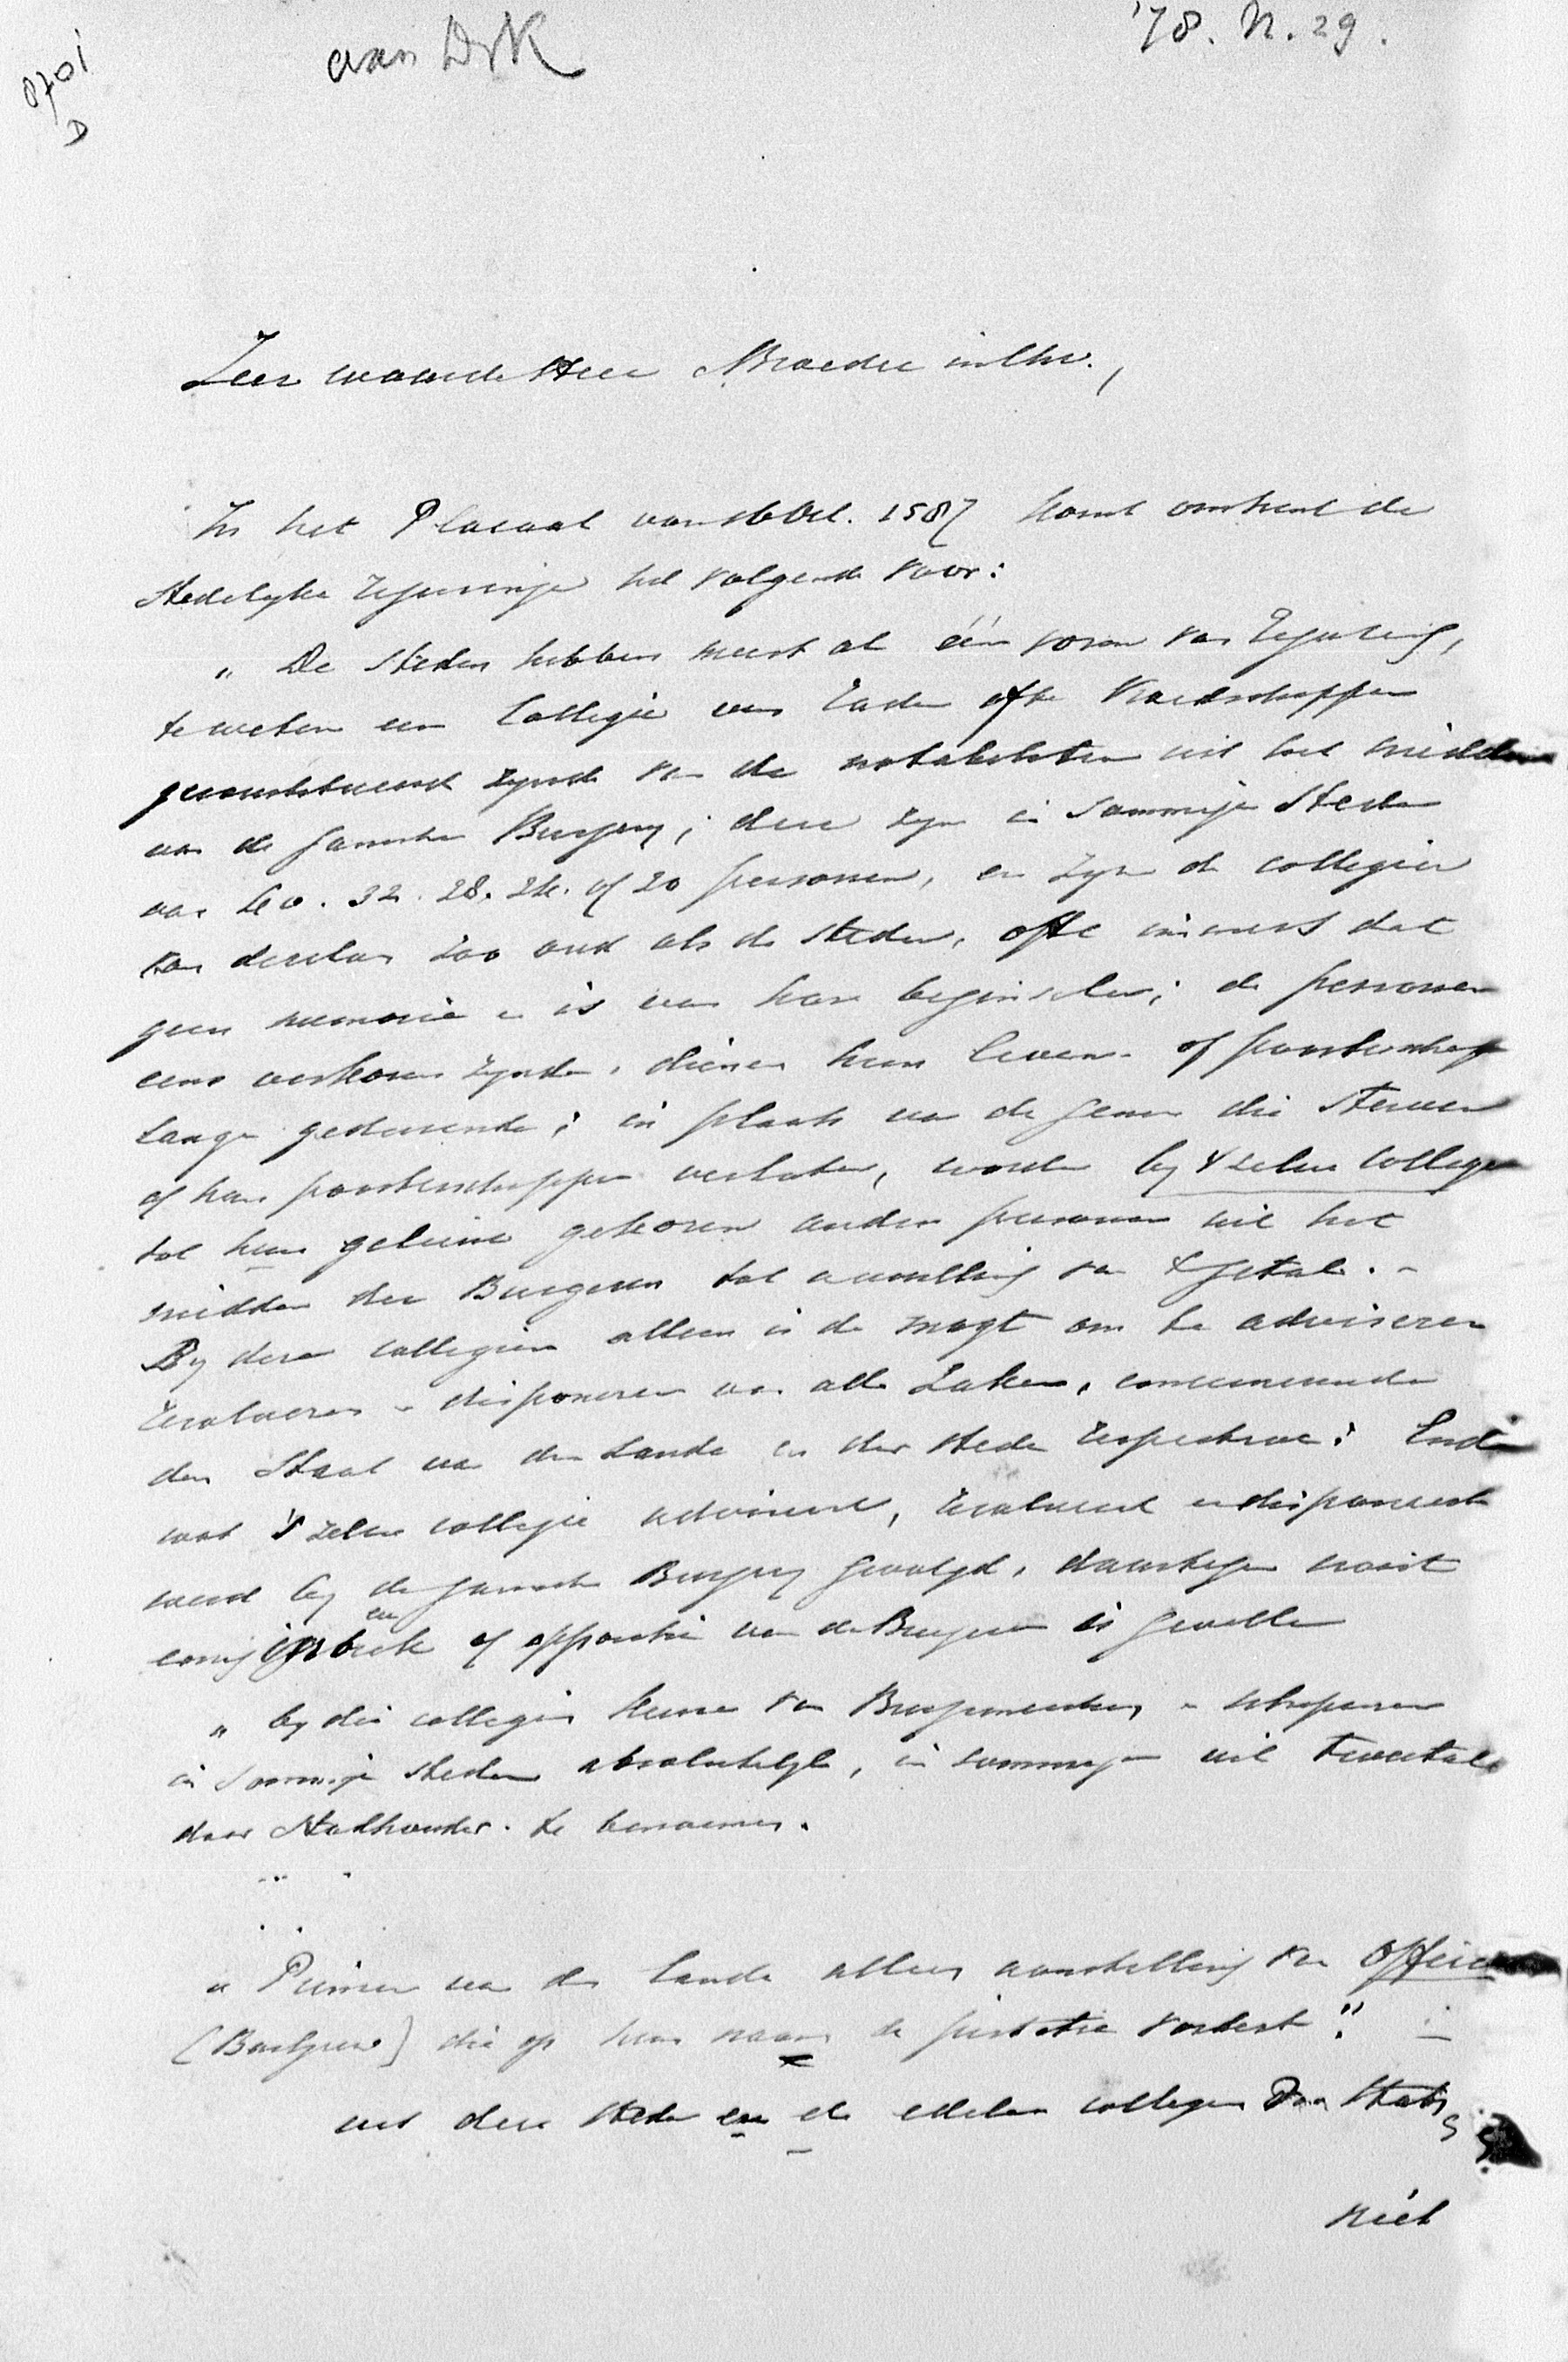 aan DrK
'78. N. 29.
0701
D
Zeer waarde Heer & Broeder in Chr.,
In het Placaat van 16 Oct. 1587 komt omtrent de
Stedelijke regeeringe het volgende voor:
„ De Steden hebben meest al één vorm van regeering,
te weten een Collegie van raden ofte Vroedschappen
geconstitueerd zijnde van de notabelsten uit het midden
van de gansche Burgerij; deze zijn in sommige Steden
van 40. 32. 28. 24. of 20 personen, en zijn de collegien
van dezelve zoo oud als de steden, ofte immers dat
geen memorie en is van hare beginselen; de personen
eens verkoren zijnde, dienen hun leven- of poorterschap
lange gedurende; in plaats van de genen die sterven
of haar poorterschappen verlaten, worden by 't zelve college
tot hun gelieve gekoren andere personen uit het
midden der Burgeren tot vervulling van 't getal. –
By deze collegien alleen is de magt om te adviseren
resolveren & disponeren van alle zaken, concernerende
den Staat van den Lande en der stede respective: Ende
wat 't zelve collegie adviseert, resolveert en disponeert
werd by de gansche Burgery gevolgd, daartegen nooit
eenig inbreuk of oppositie van de Burgeren is gevallen
„ by die collegien keuze van Burgemeesters & schepenen
in sommige steden absolutelijk, in sommige uit tweetal
door Stadhouder te benoemen.
„ Prince van den Lande alleen aanstelling van officier
(Baljuw) die op hun naam de justitie vordert."
uit deze steden en de edelen collegie van Staten
niet